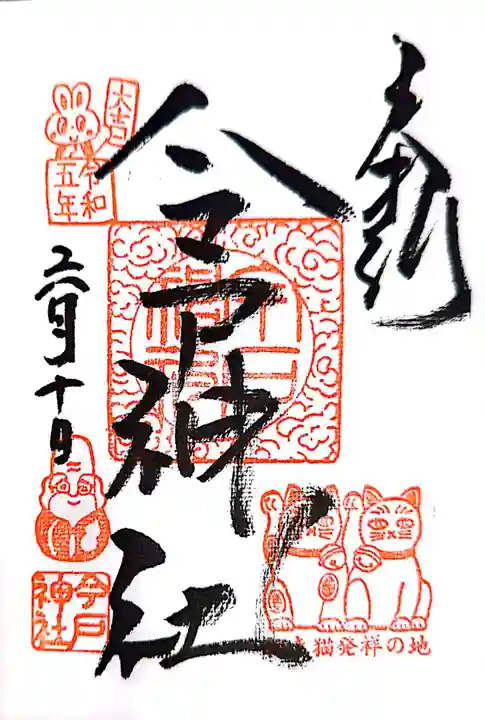 奉拝
今戸神社
大吉
令和
五年
六月十日
今戸
神社
招き猫発祥の地